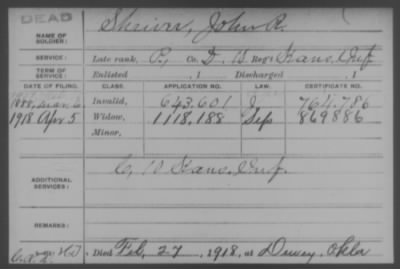 DEAD
NAME OF SOLDIER: Shriver, John R.
SERVICE: Late rank, P, Co. D, 11 Reg't Kans. Inf
TERM OF SERVICE: Enlisted , 1 Discharged , 1
DATE OF FILING. CLASS. APPLICATION NO. LAW. CERTIFICATE NO.
1888, Mar. 6 Invalid, 643.601 J 764.786
1918 Apr 5 Widow, 1118,188 Sep 869886
Minor,
ADDITIONAL SERVICES: C, Kans. Inf.
REMARKS:
Died Feb, 27, 1918, at Dewey, Okla